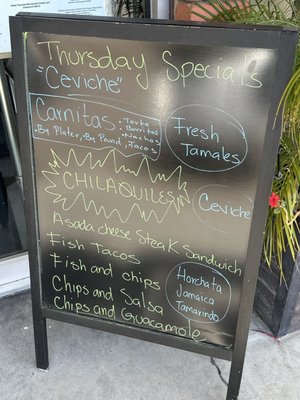 Thursday Specials
"Ceviche"
Carnitas
. Torta
. Burritos
. Nachos
. Tacos
. By Plater, . By Pound,
Fresh
Tamales
CHILAQUILES
Ceviche
Asada cheese Steak Sandwich
Fish Tacos
Fish and chips
Chips and Salsa
Chips and Guacamole
Horchata
Jamaica
Tamarindo